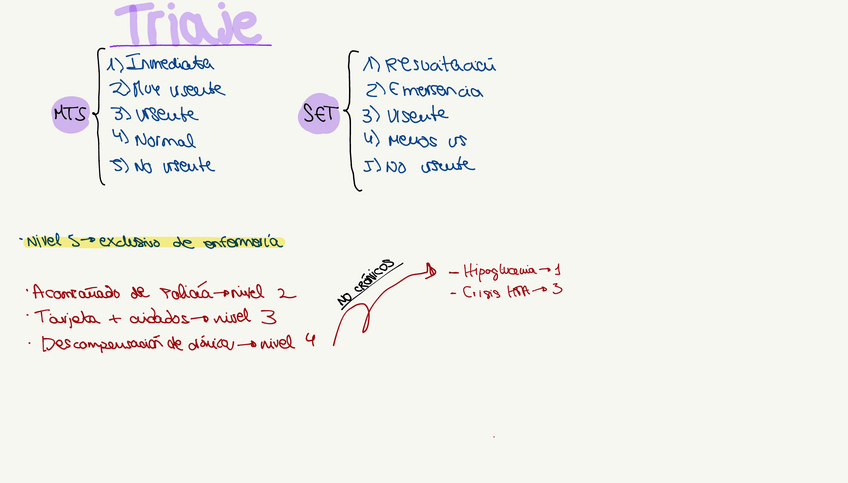 Triaje
MTS
1) Inmediata
2) Muy urgente
3) Urgente
4) Normal
5) No urgente
SET
1) Resucitación
2) Emergencia
3) Urgente
4) Menos ur
5) No urgente
· Nivel 5 → exclusivo de enfermería
· Acompañado de policía → nivel 2
· Tarjeta + cuidados → nivel 3
· Descompensación de crónica → nivel 4
NO CRÓNICOS
- Hipoglucemia → 1
- Crisis HTA → 3